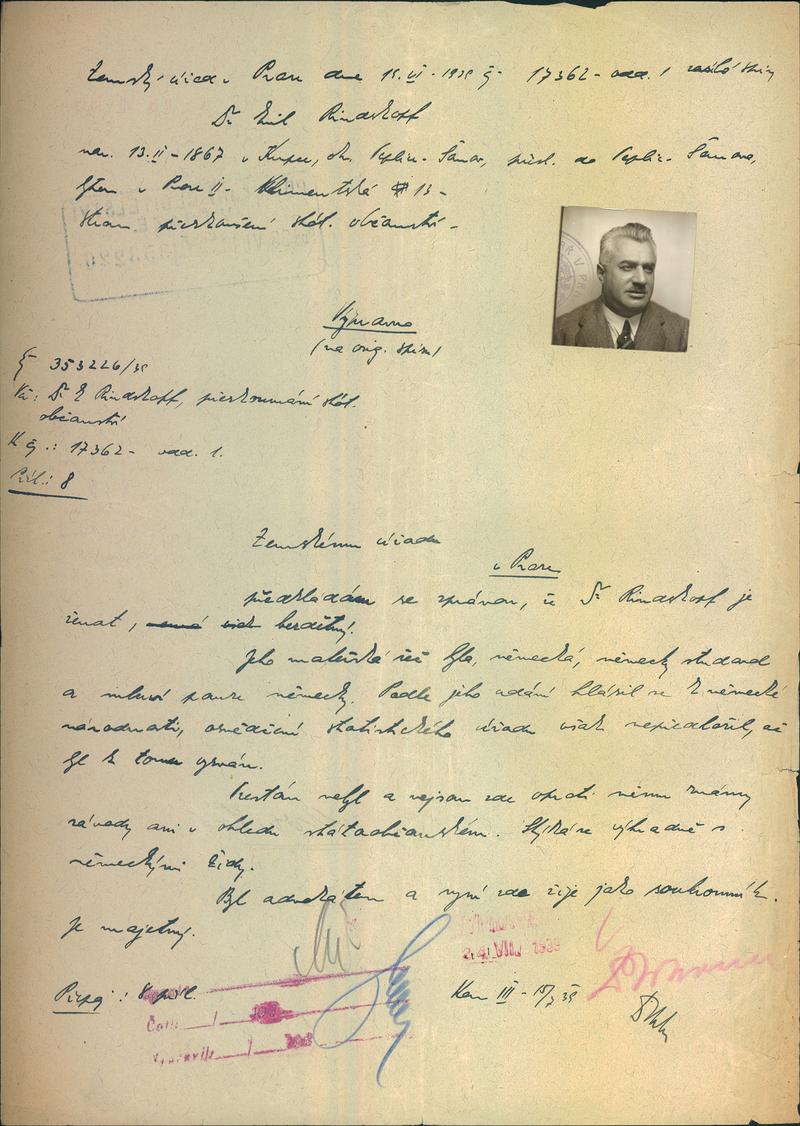 Zemský úřad v Praze dne 15.VI.1939 č. 17362- odd. 1 zaslal spisy
Dr Emil Rindskopf
nar. 13.II-1867 v Krupce, okr. Teplic-Šanov, přísl. do Teplic-Šanova,
bytem v Praze II- Klimentská 13-
stran přezkoušení stát. občanství-
Výpravna
(na orig. spisu)
Č 353226/39
Věc: Dr E Rindskopf, přezkoumání stát.
občanství
K č.: 17362- odd. 1.
Příl.: 8
Zemskému úřadu
v Praze
předkládám se zprávou, že Dr Rindskopf je
ženat, bezdětný.
Jeho mateřská řeč byla německá, německy studoval
a mluví pouze německy. Podle jeho udání hlásil se k německé
národnosti, osvědčení statistického úřadu však nepředložil, ač
byl k tomu vyzván.
Trestán nebyl a nejsou zde oproti němu známy
závady ani v ohledu státoobčanském. Stýká se výhradně s
německými židy.
Byl advokátem a nyní zde žije jako soukromník.
Je majetný.
Připoj: 8 příl.